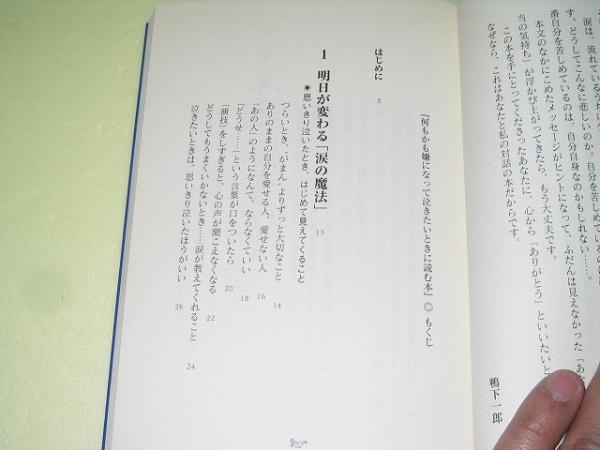 涙は、流れているうちに
す。どうしてこんなに悲しいのか。自分を苦しめている
番自分を苦しめているのは、自分自身なのかもしれない……。
本文のなかにこめたメッセージがヒントになって、ふだんは見えなかった「あ
当の気持ち」が浮かび上がってきたら、もう大丈夫です。
この本を手にとってくださったあなたに、心から「ありがとう」といいたいと
なぜなら、これはあなたと私の対話の本だからです。
鴨下一郎
『何もかも嫌になって泣きたいときに読む本』◎もくじ
はじめに 3
1 明日が変わる「涙の魔法」 13
◉思いきり泣いたとき、はじめて見えてくること
つらいとき、“がまん”よりずっと大切なこと 14
ありのままの自分を愛せる人、愛せない人 16
「あの人」のようになんて、ならなくていい 18
「どうせ……」という言葉が口をついたら 20
「演技」をしすぎると、心の声が聞こえなくなる 22
どうしてもうまくいかないとき……涙が教えてくれること 24
泣きたいときは、思いきり泣いたほうがいい 26